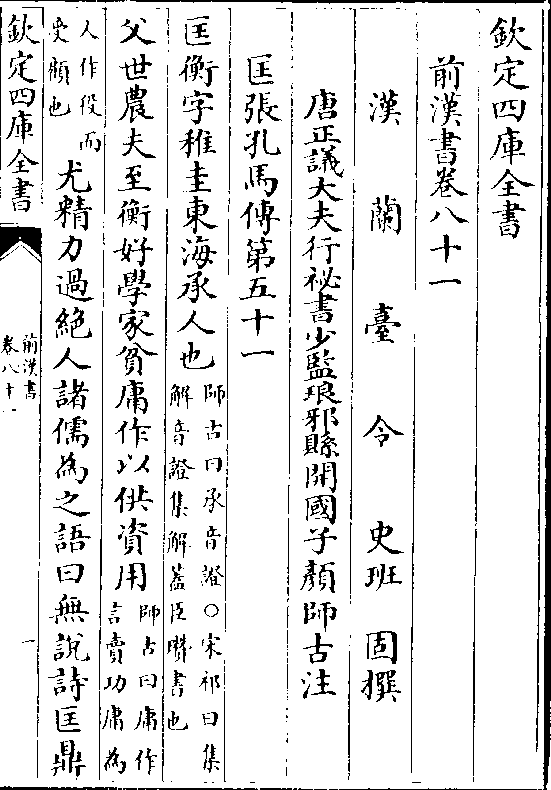 欽定四庫全書
前漢書卷八十一
漢蘭臺令史班固撰
唐正議大夫行祕書少監琅邪縣開國子顏師古注
匡張孔馬傳第五十一
匡衡字稚圭東海承人也師古曰承音證○宋祁曰集解音證集解蓋臣瓚書也
父世農夫至衡好學家貧庸作以供資用師古曰庸作言賣功庸為
人作役而受顧也尤精力過絶人諸儒為之語曰無說詩匡鼎
欽定四庫全書
前漢書
卷八十一
一